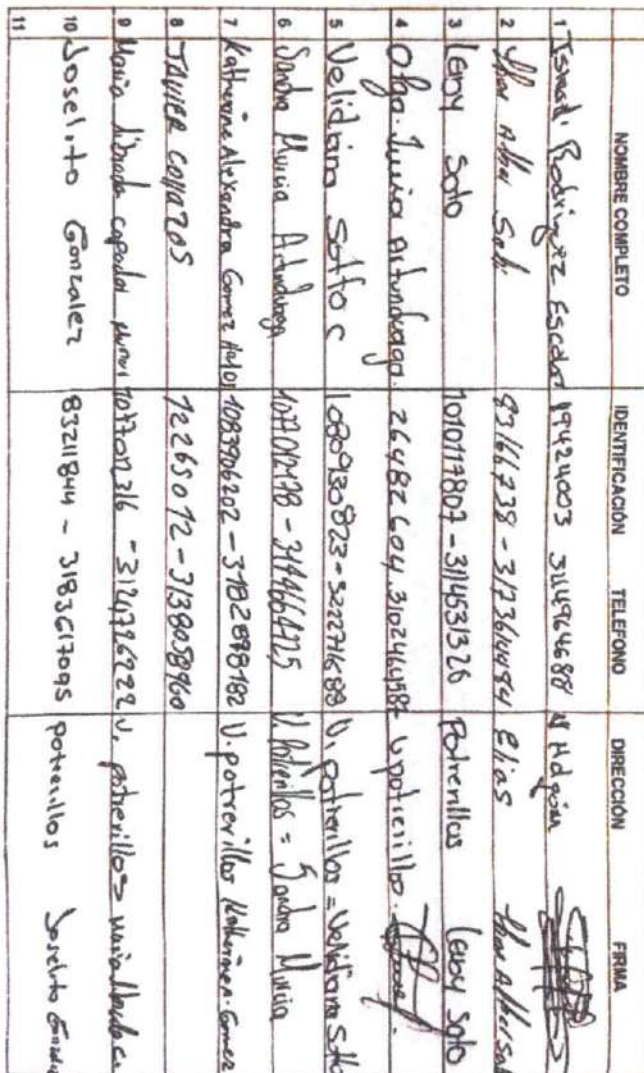 NOMBRE COMPLETO IDENTIFICACIÓN TELEFONO DIRECCIÓN FIRMA
1 Rodriguez 19424003 3114964688
2 83166738 - 3173614484 Elias
3 Leidy Soto 1010117807 - 3114531326 Potrerillos Leidy Soto
4 Olga 26482604 3102464587 V potrerillo
5 Velidiana Sotto C 1080930823 - 3222716188 V. potrerillos = Velidiana Sotto
6 Sandra Murcia Artunduaga 1077012178 - 3144664725 V. Potrerillos = Sandra Murcia
7 Katherine Alexandra Gomez 1083906202 - 3182898182 V. potrerillos Katherine A. Gomez
8 JAVIER COllAZOS 12265012 - 3138058960
9 Maria librada 1077012316 - 3124726222 V. potrerillos
10 Joselito Gonzalez 83211844 - 3183617095 potrerillos Joselito
11